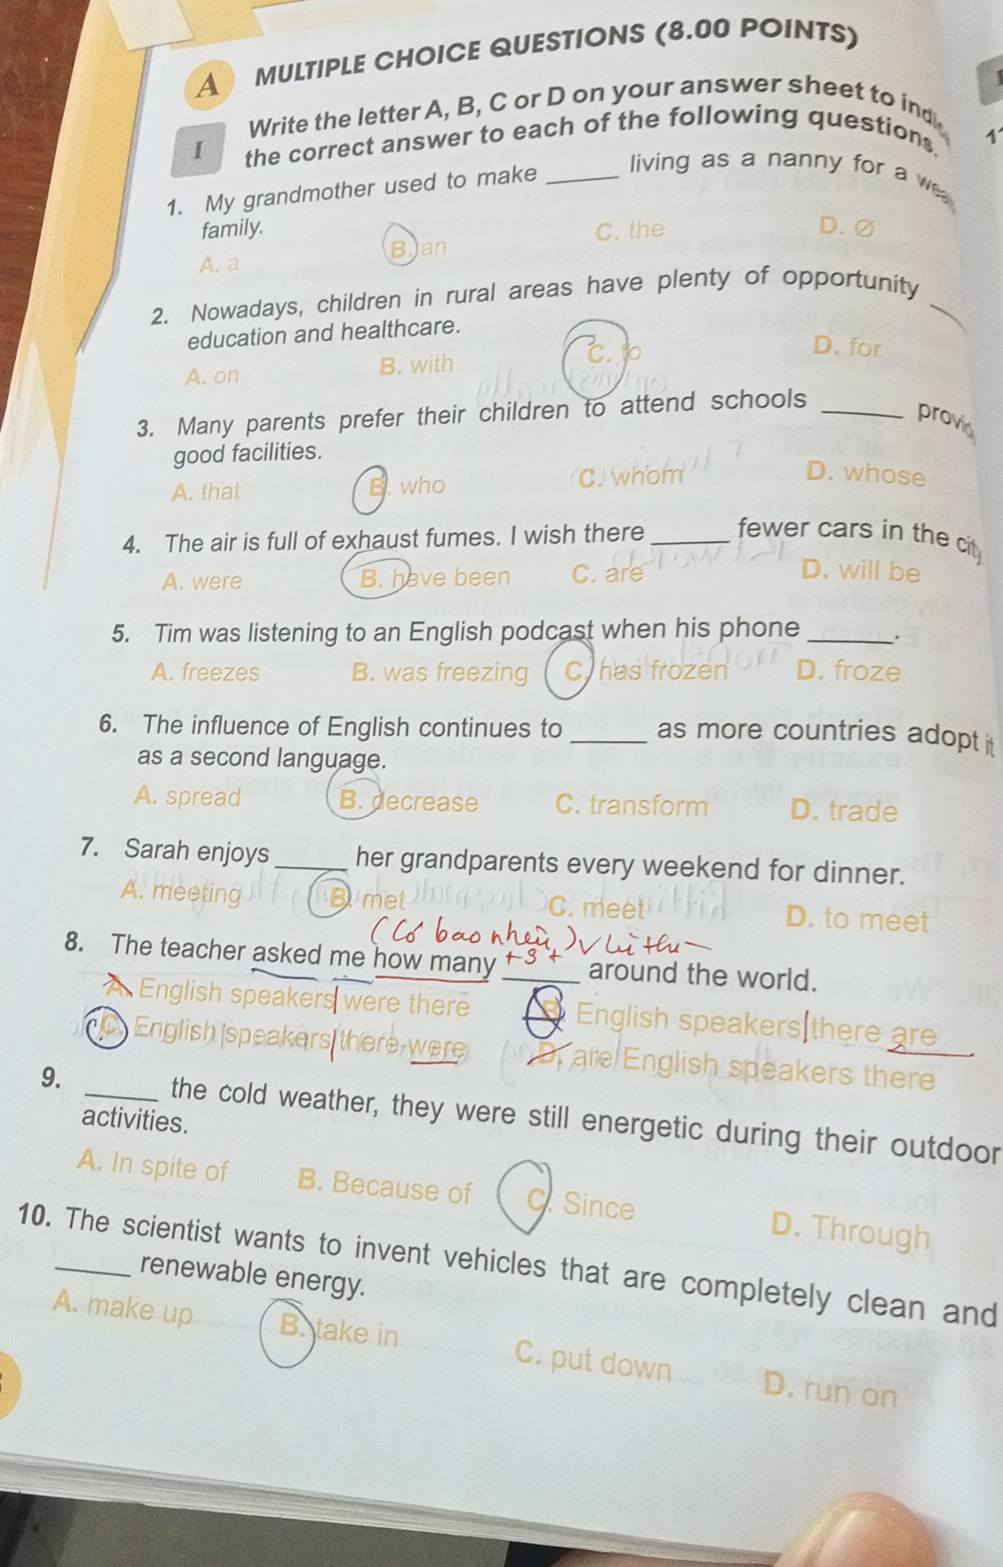 A MULTIPLE CHOICE QUESTIONS (8.00 POINTS)
I Write the letter A, B, C or D on your answer sheet to
the correct answer to each of the following questions.
1. My grandmother used to make ______ living as a nanny for a
family.
A. a B. an C. the D. Ø
2. Nowadays, children in rural areas have plenty of opportunity ___
education and healthcare.
A. on B. with C. to D. for
3. Many parents prefer their children to attend schools ______
good facilities.
A. that B. who C. whom D. whose
4. The air is full of exhaust fumes. I wish there ______ fewer cars in the city
A. were B. have been C. are D. will be
5. Tim was listening to an English podcast when his phone ______.
A. freezes B. was freezing C. has frozen D. froze
6. The influence of English continues to ______ as more countries adopt it
as a second language.
A. spread B. decrease C. transform D. trade
7. Sarah enjoys ______ her grandparents every weekend for dinner.
A. meeting B. met C. meet D. to meet
(Có bao nhiêu)
8. The teacher asked me how many ______ around the world.
+S+
A. English speakers were there B. English speakers there are
C. English speakers there were D. are English speakers there
9. ______ the cold weather, they were still energetic during their outdoor
activities.
A. In spite of B. Because of C. Since D. Through
10. The scientist wants to invent vehicles that are completely clean and
______ renewable energy.
A. make up B. take in C. put down D. run on